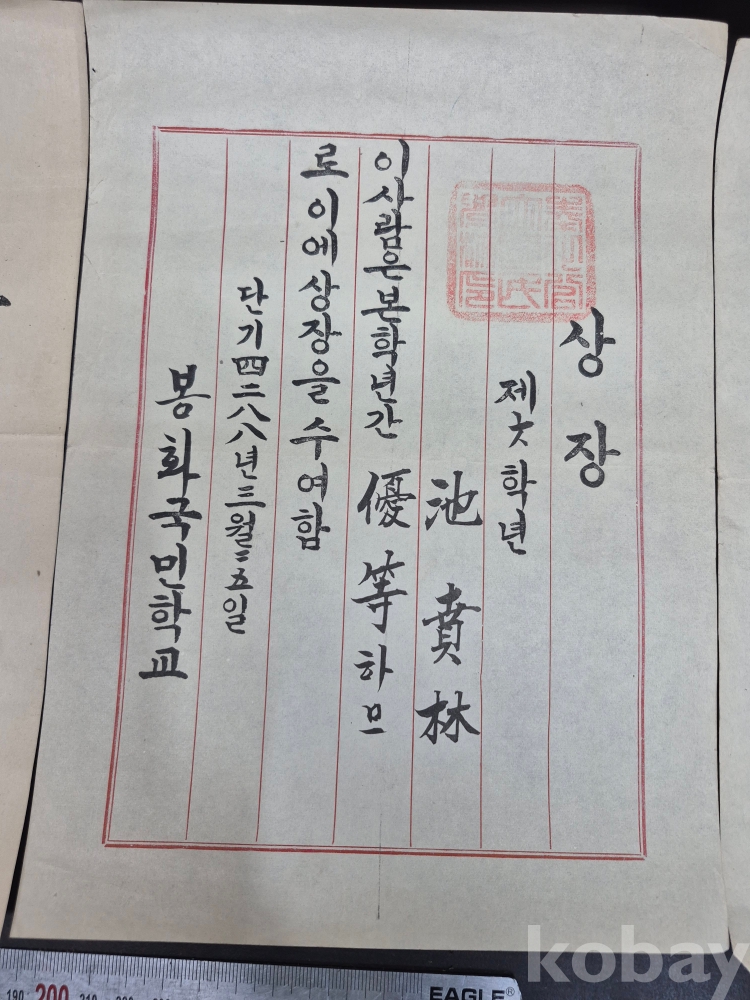 상장
제六학년
池賁林
이사람은본학년간優等하므
로이에상장을수여함
단기四二八八년三월二五일
봉화국민학교
190 200 210 220 230
EAGLE®
kobay